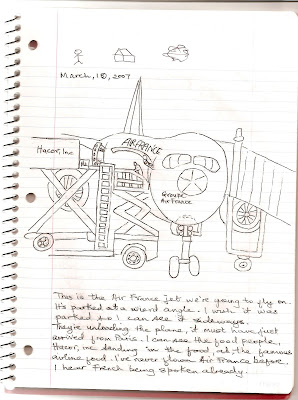 March, 18, 2007
AIRFRANCE
Hacor, Inc
Groupe
Air France
This is the Air France jet we're going to fly on.
It's parked at a wierd angle. I wish it was
parked so I can see it sideways.
They're unloading the plane, it must have just
arrived from Paris. I can see the food people,
Hacor, Inc sending in the food, ah, the famous
airline food. I've never flown Air France before.
I hear French being spoken already.